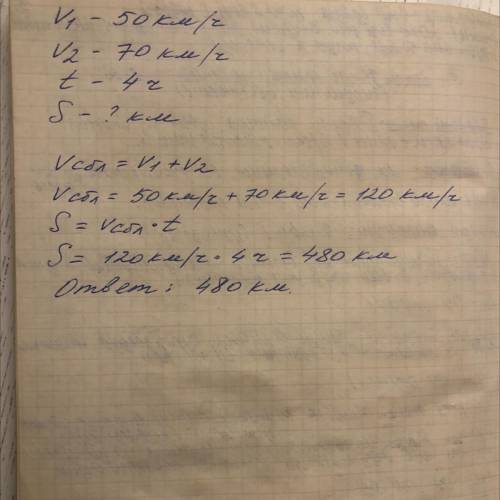 V1 - 50 км/ч
V2 - 70 км/ч
t - 4 ч
S - ? км
Vсбл = V1 + V2
Vсбл = 50 км/ч + 70 км/ч = 120 км/ч
S = Vсбл · t
S = 120 км/ч · 4 ч = 480 км
Ответ: 480 км.